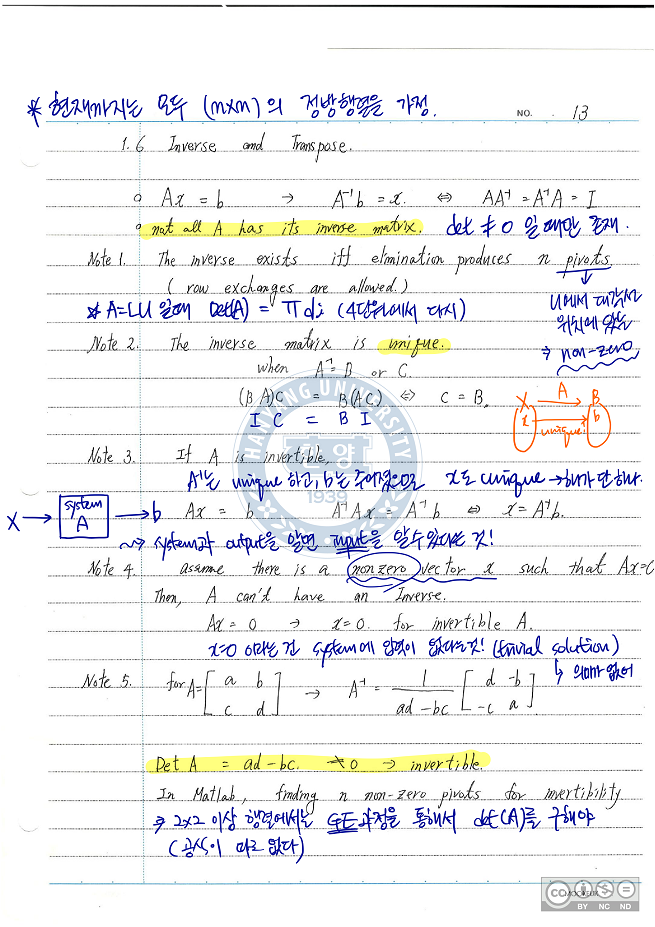 * 현재까지는 모두 (n×n)의 정방행렬을 가정.
NO. 13
1.6 Inverse and Transpose.
o Ax = b → A⁻¹b = x. ⇔ AA⁻¹ = A⁻¹A = I
o not all A has its inverse matrix. det ≠ 0 일 때만 존재.
Note 1. The inverse exists iff elimination produces n pivots
(row exchanges are allowed.)
* A=LU일때 Det(A) = πdi (4단원에서 다시)
U에서 대각선
위치에 있는
⇒ non-zero
Note 2. The inverse matrix is unique.
when A⁻¹= B or C.
(BA)C = B(AC) ⇔ C = B.
I C = B I
X A B
x unique! b
HANYANG UNIVERSITY
한양
1939
Note 3. If A is invertible,
A⁻¹는 unique 하고, b는 주어졌으므로 x도 unique → 해가 단 하나.
X → system A → b Ax = b A⁻¹Ax = A⁻¹b ⇔ x = A⁻¹b.
~> system과 output을 알면 input을 알 수 있다는 것!
Note 4. assume there is a nonzero vector x such that Ax=0
Then, A can't have an Inverse.
Ax = 0 → x=0. for invertible A.
x=0 이라는 건 system에 입력이 없다는 것! (trivial solution)
↳ 의미 없어
Note 5. for A= [a b; c d] → A⁻¹ = 1/(ad-bc) [d -b; -c a]
Det A = ad-bc. ≠0 → invertible.
In Matlab, finding n non-zero pivots for invertibility
⇒ 2×2 이상 행렬에서는 GE과정을 통해서 det(A)를 구해야
(공식이 따로 없다)
CC MOOKEUK
BY NC ND